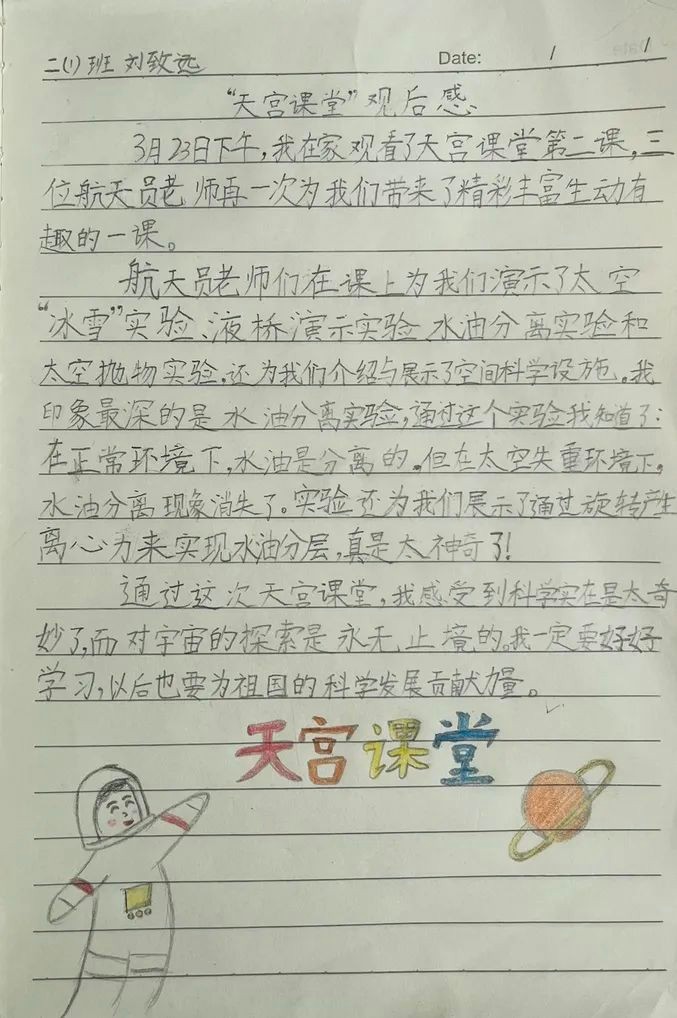 二(1)班 刘致远 Date: / /
“天宫课堂”观后感
3月23日下午,我在家观看了天宫课堂第二课,三
位航天员老师再一次为我们带来了精彩丰富生动有
趣的一课。
航天员老师们在课上为我们演示了太空
“冰雪”实验、液桥演示实验、水油分离实验和
太空抛物实验,还为我们介绍与展示了空间科学设施。我
印象最深的是水油分离实验,通过这个实验我知道了:
在正常环境下,水油是分离的。但在太空失重环境下,
水油分离现象消失了。实验还为我们展示了通过旋转产生
离心力来实现水油分层,真是太神奇了!
通过这次天宫课堂,我感受到科学实在是太奇
妙了,而对宇宙的探索是永无止境的。我一定要好好
学习,以后也要为祖国的科学发展贡献力量。
天宫课堂